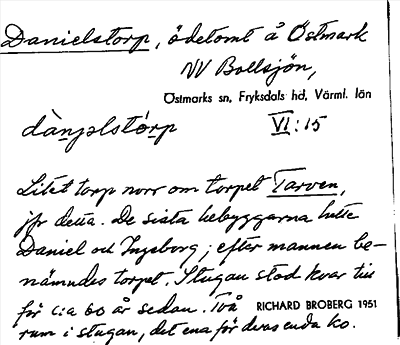 Danielstorp, ödetomt å Östmark
NV Bollsjön,
Östmarks sn, Fryksdals hd, Värml. län
dànjəlstórp VI:15
Litet torp norr om torpet Tarven,
jfr detta. De sista bebyggarna hette
Daniel och Ingeborg; efter mannen be-
nämndes torpet. Stugan stod kvar till
för c:a 60 år sedan. Två RICHARD BROBERG 1951
rum i stugan, det ena för deras enda ko.